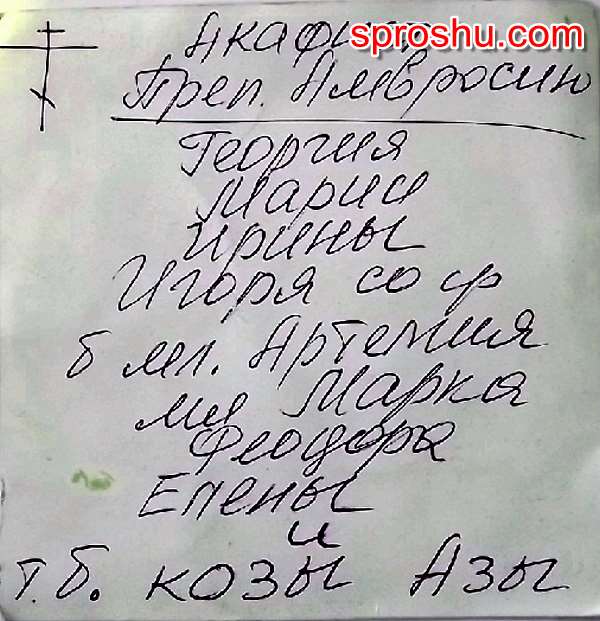 Акафист
sproshu.com
Преп. Амвросию
Георгия
Марии
Ирины
Игоря со ср
б мл. Артемия
мл Марка
Феодора
Елены
и
т.б. козы Азы